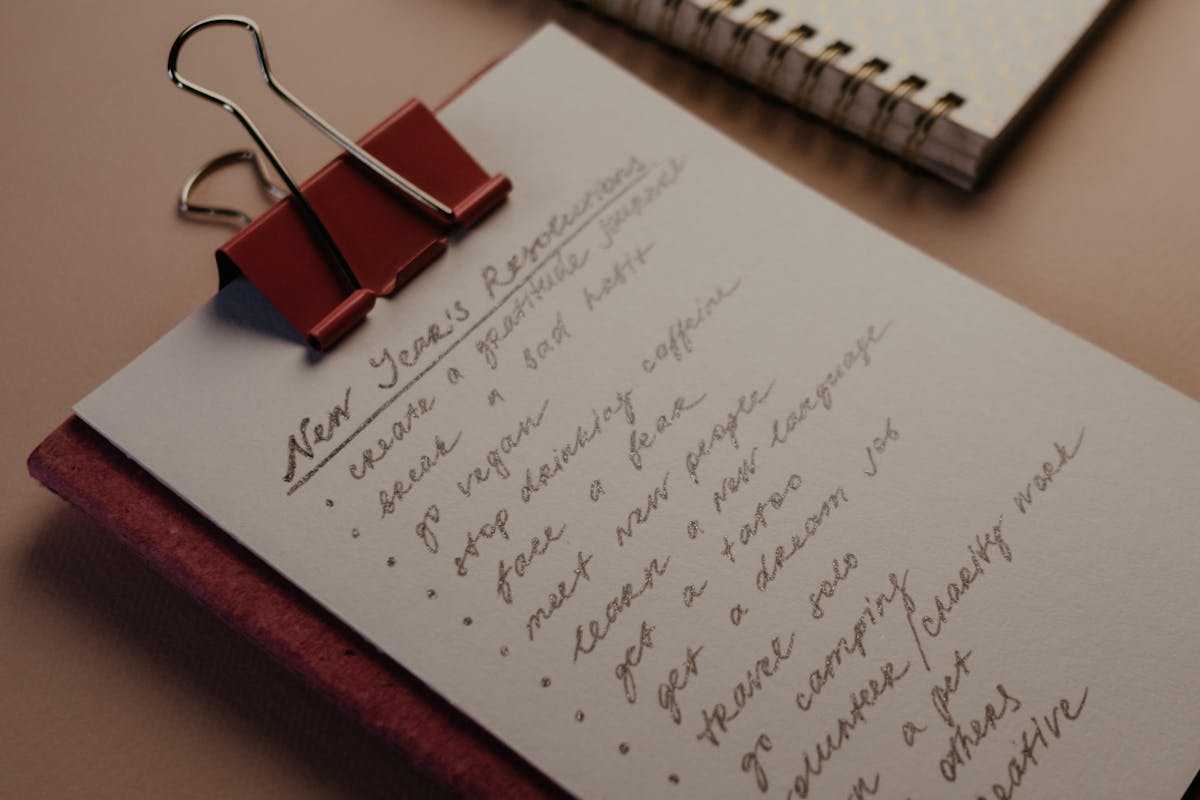 New Year's Resolutions
• create a gratitude journal
• break a bad habit
• go vegan
• stop drinking caffeine
• face a fear
• meet new people
• learn a new language
• get a tatoo
• get a dream job
• travel solo
go camping
volunteer/charity work
a pet
others